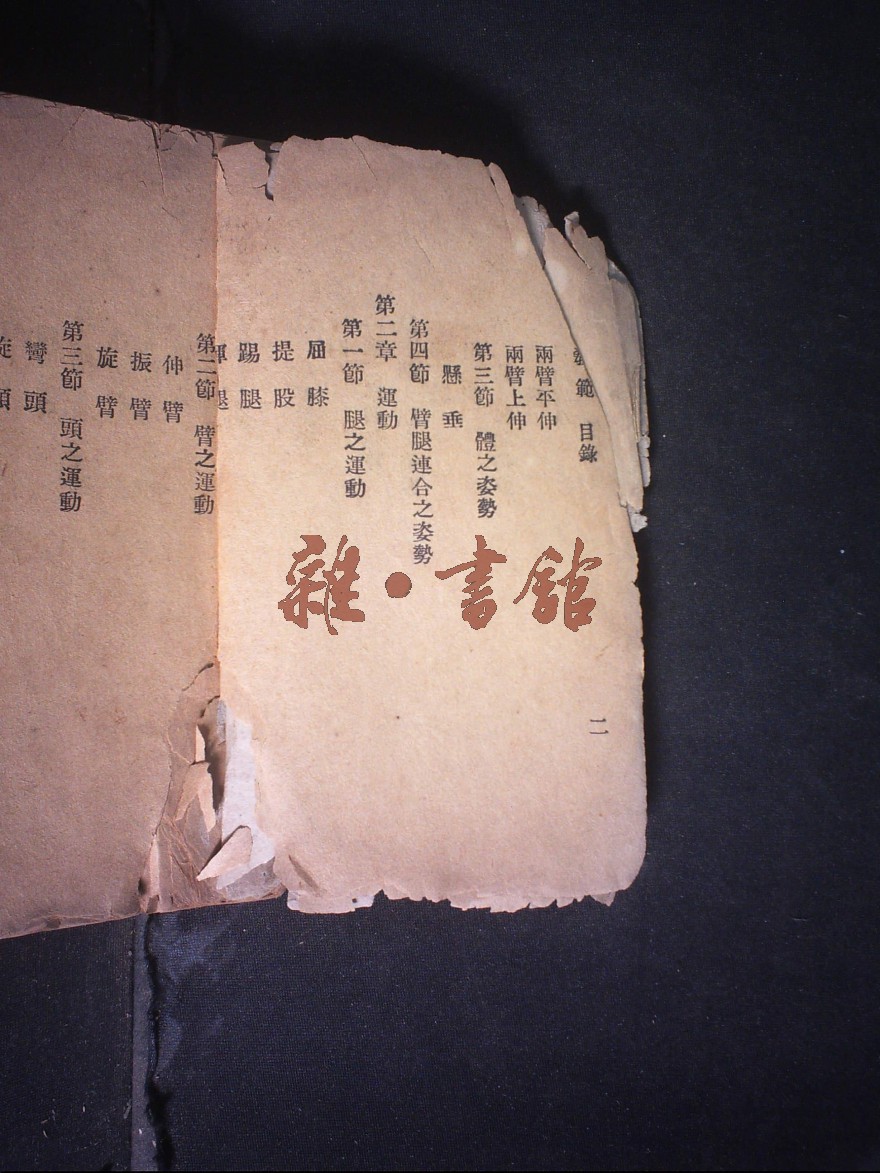 範 目錄
兩臂平伸
兩臂上伸
第三節 體之姿勢
懸垂
第四節 臂腿連合之姿勢
第二章 運動
第一節 腿之運動
屈膝
提股
踢腿
第二節 臂之運動
伸臂
振臂
旋臂
第三節 頭之運動
彎頭
旋頭
二
雜·書館